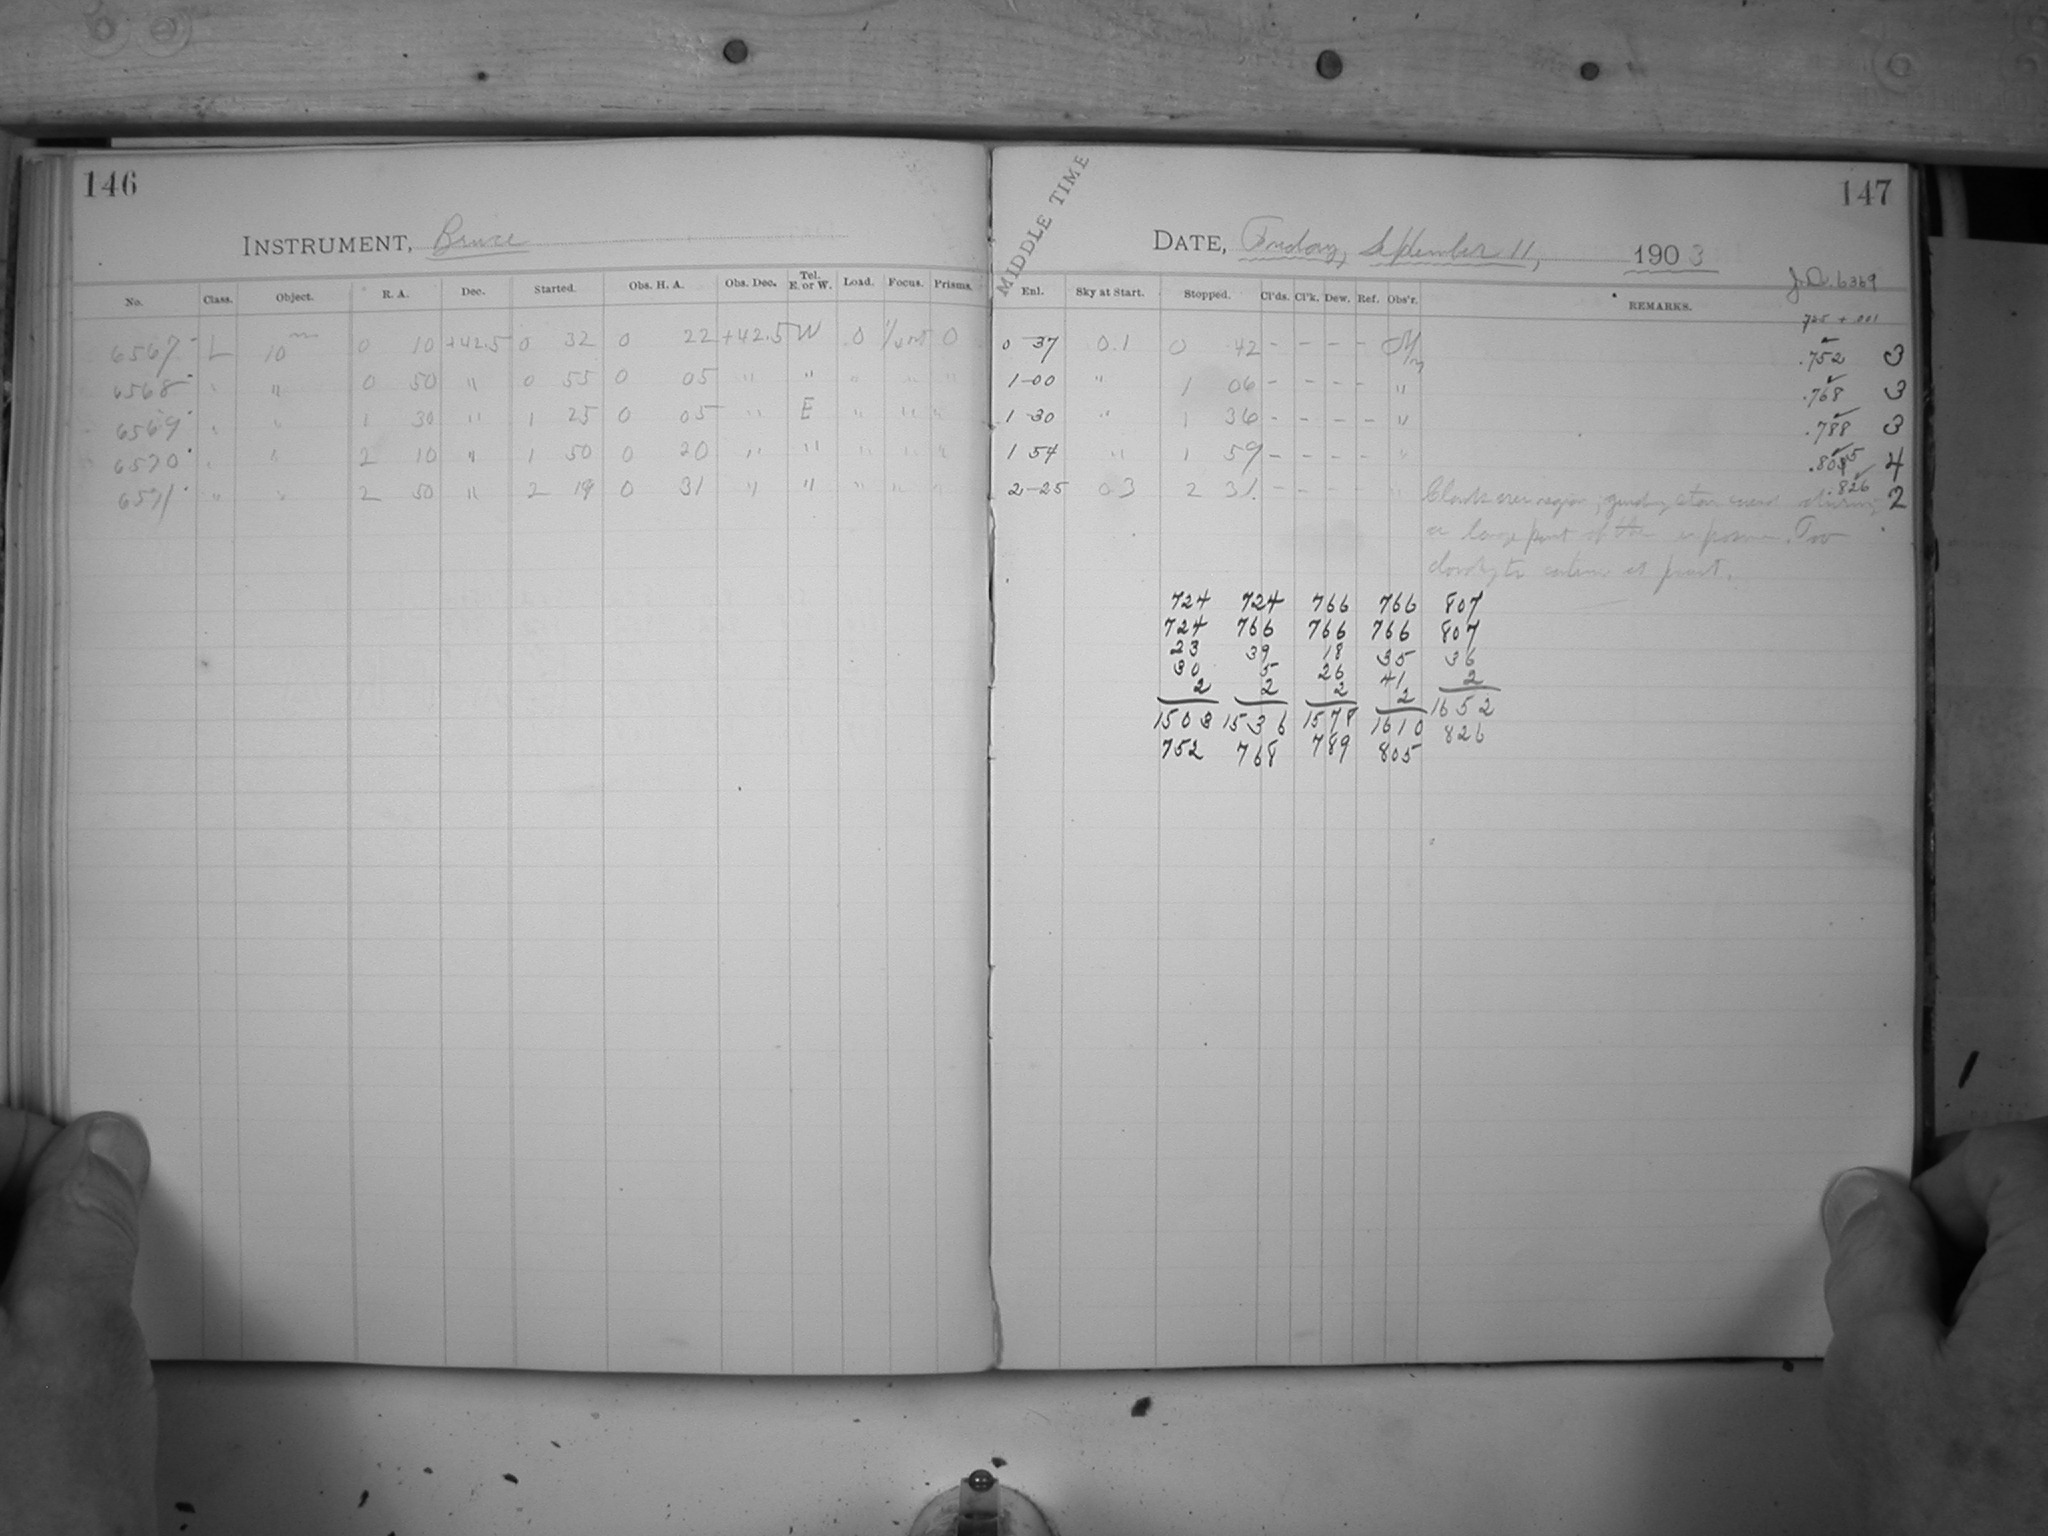 146
INSTRUMENT, Bruce
No. Class. Object. R. A. Dec. Started. Obs. H. A. Obs. Dec. Tel. E. or W. Load. Focus. Prisms.
6567 L 10m 0 10 +42.5 0 32 0 22 +42.5 W 0 0
6568 " " 0 50 " 0 55 0 05 " " " " "
6569 " " 1 30 " 1 25 0 05 " E " " "
6570 " " 2 10 " 1 50 0 20 " " " " "
6571 " " 2 50 " 2 19 0 31 " " " " "
147
MIDDLE TIME
DATE, Friday, September 11, 1903
J.D. 6369
Enl. Sky at Start. Stopped. Cl'ds. Cl'k. Dew. Ref. Obs'r. REMARKS.
725 + .001
0 37 0.1 0 42 - - - - .752 3
1-00 " 1 06 - - - - " .768 3
1 30 " 1 36 - - - - " .788 3
1 54 " 1 59 - - - - " .805 4
2-25 0.3 2 31 - - - - " .826 2
Clouds over region, guiding star during
a large part of the exposure. Too
cloudy to continue at
724 724 766 766 807
724 766 766 766 807
23 39 18 35 36
30 5 26 41 2
2 2 2 2
1503 1536 1578 1610 1652
752 768 789 805 826